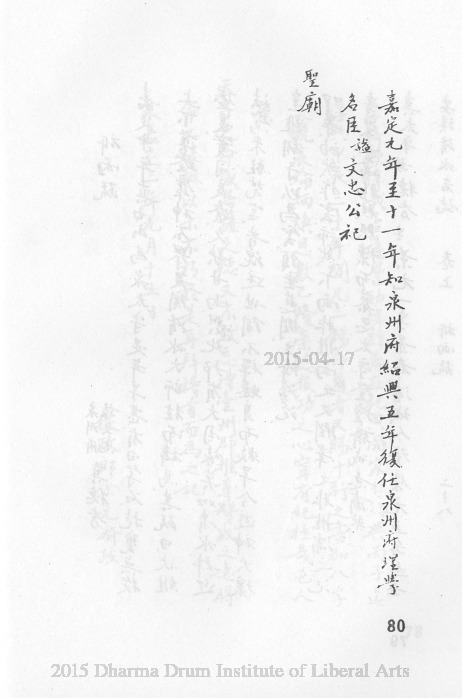 嘉定九年至十一年知泉州府紹興五年復任泉州府理學
名臣諡文忠公祀
聖廟
2015-04-17
80
2015 Dharma Drum Institute of Liberal Arts